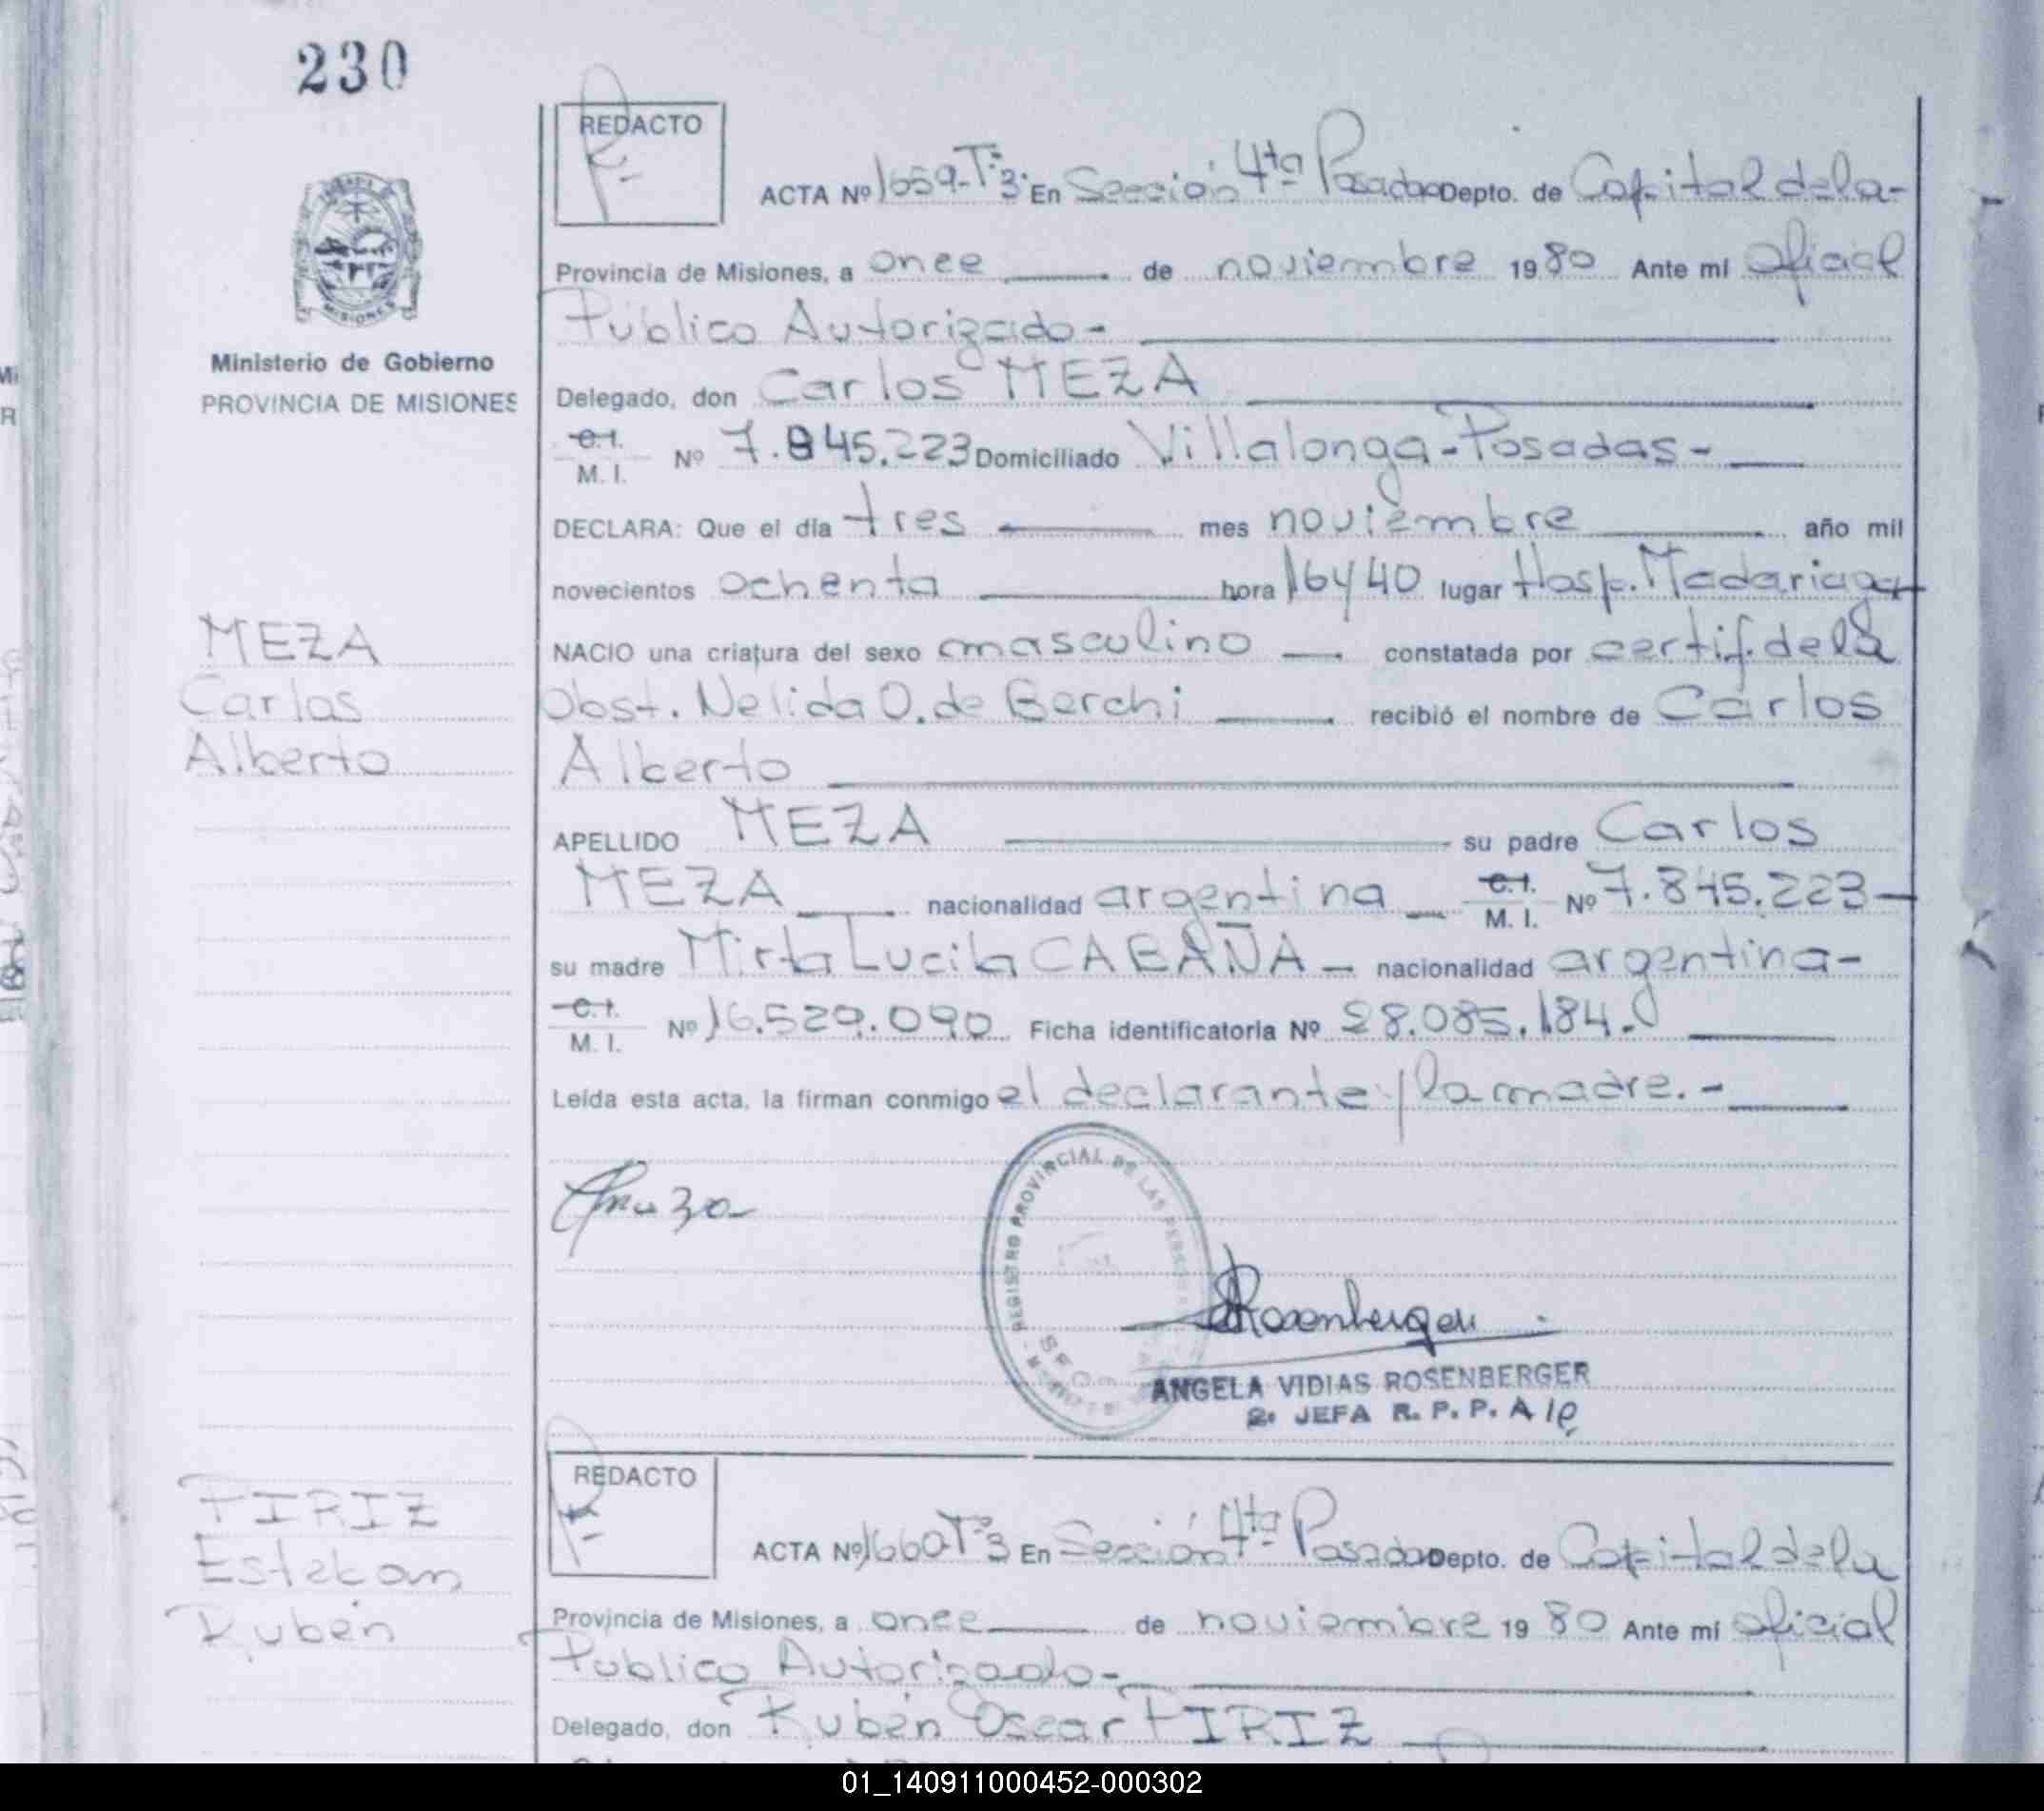 230
REDACTO
ACTA Nº 1659-Tº3. En Sección 4ta Posadas Depto. de Capital de la-
Provincia de Misiones, a once de noviembre 1980 Ante mi Oficial
Público Autorizado-
MISIONES
Ministerio de Gobierno
PROVINCIA DE MISIONES
Delegado, don Carlos MEZA
C.I.
M. I. Nº 7.845.223 Domiciliado Villalonga-Posadas-
DECLARA: Que el día tres mes noviembre año mil
novecientos ochenta hora 16y40 lugar Hosp. Madariaga
NACIO una criatura del sexo masculino constatada por certif. de la
Obst. Nelida O. de Berchi recibió el nombre de Carlos
Alberto
MEZA
Carlos
Alberto
APELLIDO MEZA su padre Carlos
MEZA nacionalidad argentina C.I.
M. I. Nº 7.845.223-
su madre Mirta Lucila CABAÑA - nacionalidad argentina-
C.I.
M. I. Nº 16.529.090 Ficha identificatoria Nº 28.085.184.
Leída esta acta, la firman conmigo el declarante y la madre.-
REGISTRO PROVINCIAL DE LAS
Rosenberger
ANGELA VIDIAS ROSENBERGER
2º JEFA R. P. P. A/c
REDACTO
ACTA Nº 1660Tº3 En Sección 4ta Posadas Depto. de Capital de la
Provincia de Misiones, a once de noviembre 1980 Ante mi oficial
Publico Autorizado-
Delegado, don Rubén Oscar PIRIZ
PIRIZ
Esteban
Rubén
01_140911000452-000302